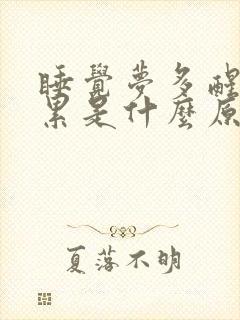 睡覺夢多醒
累是什麼原
夏落不明